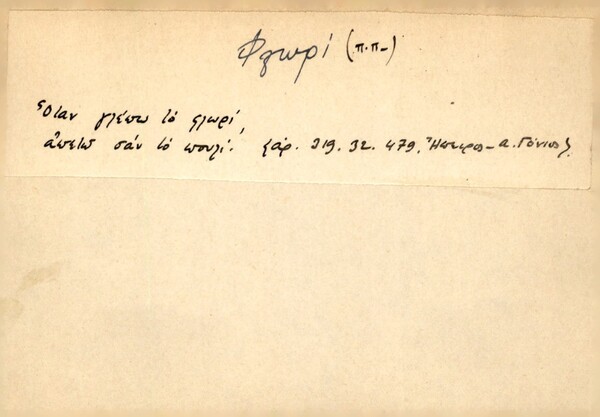 Φλωρί (π.π-)
Ὅταν γλέπω τό φλωρί,
ἀπετῶ σάν τό πουλί. {ἀρ. 319. 32. 479. Ἤπειρος - α. Γόνιος}